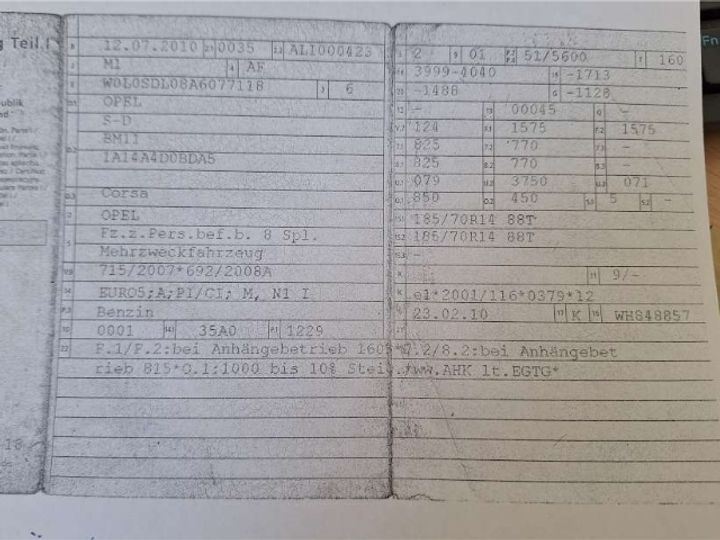 g Teil I
publik
nd
B 12.07.2010 2.1 0035 2.2 ALI000423
J M1 4 AF
E W0L0SDL08A6077118 3 6
D.1 OPEL
D.2 S-D
BM11
1A14A4D0BDA5
D.3 Corsa
2 OPEL
5 Fz.z.Pers.bef.b. 8 Spl.
Mehrzweckfahrzeug
V.9 715/2007*692/2008A
14 EURO5;A;PI/CI; M, N1 I
P.3 Benzin
10 0001 14.1 35A0 P.1 1229
22 F.1/F.2:bei Anhängebetrieb 1605*7.2/8.2:bei Anhängebet
rieb 815*O.1:1000 bis 10% Steig.*ww.AHK lt.EGTG*
L 2 9 01 P.2 P.4 51/5600 T 160
18 3999-4040 19 -1713
20 -1488 G -1128
12 - 13 00045 Q -
V.7 124 F.1 1575 F.2 1575
7.1 825 7.2 770 7.3 -
8.1 825 8.2 770 8.3 -
U.1 079 U.2 3750 U.3 071
O.1 850 O.2 450 S.1 5 S.2 -
15.1 185/70R14 88T
15.2 185/70R14 88T
15.3 -
R 11 9/-
K e1*2001/116*0379*12
6 23.02.10 17 K 16 WH848857
21
18
Fn